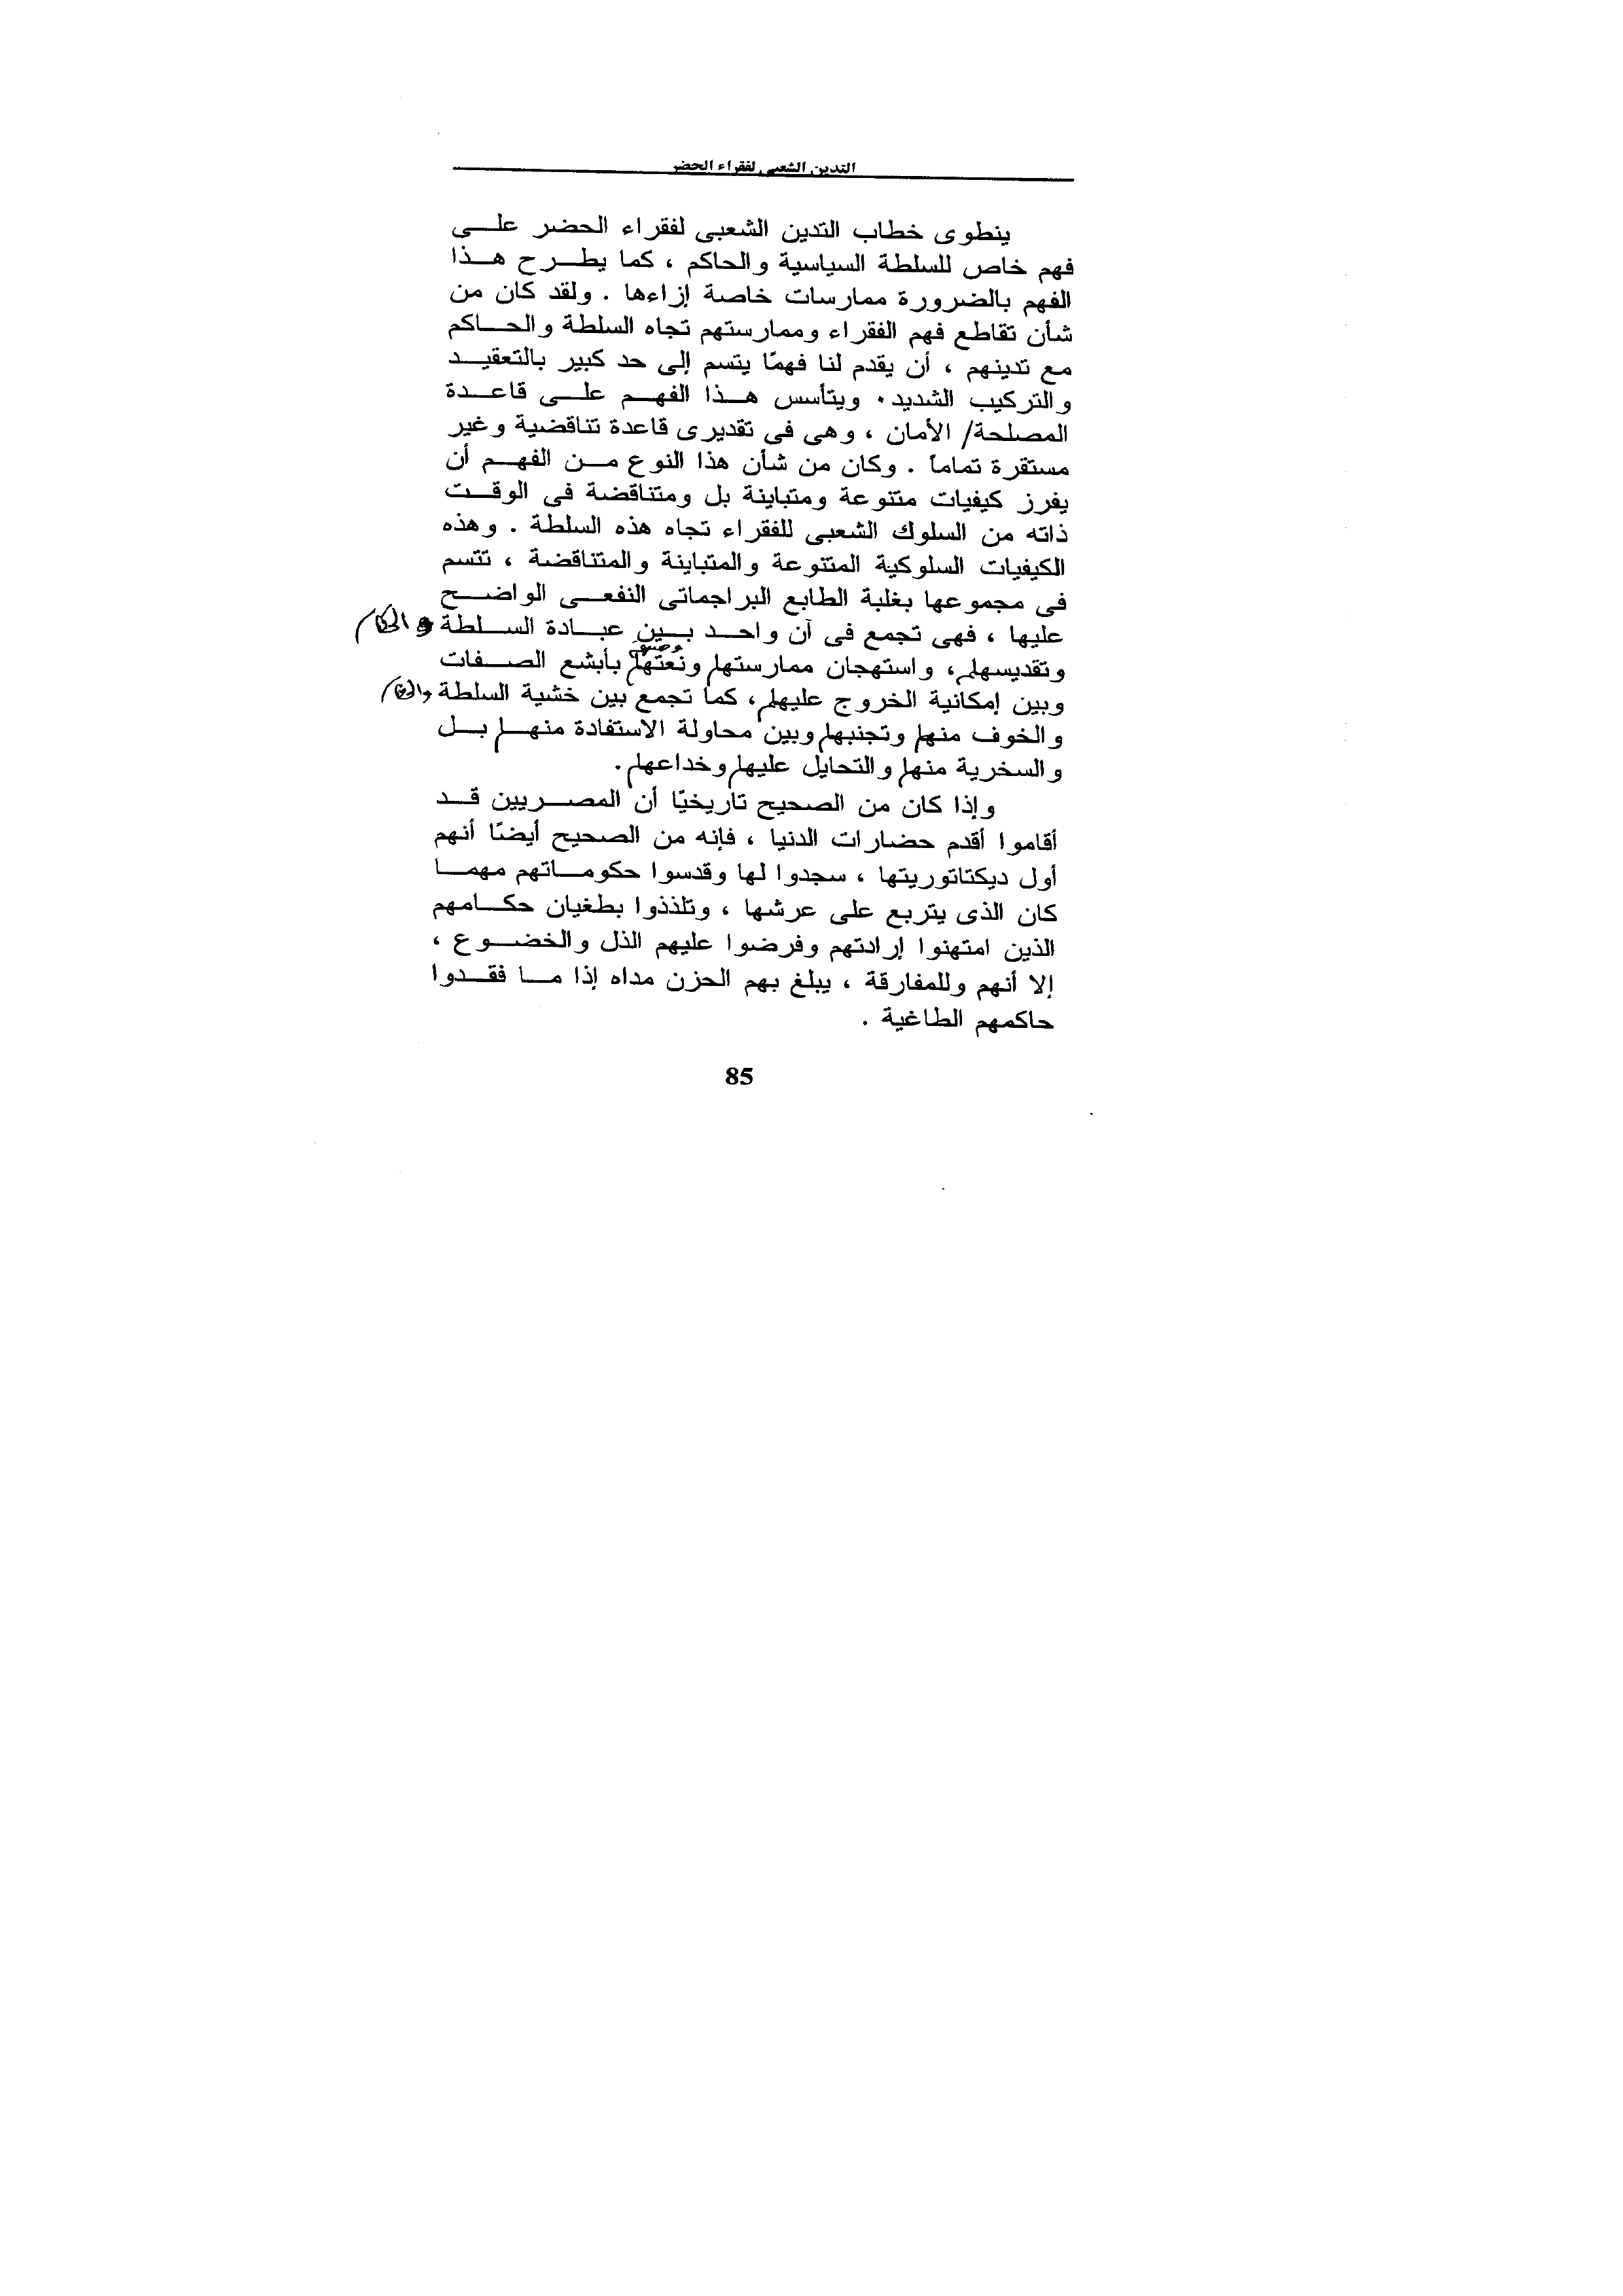 التدين الشعبى لفقراء الحضر
ينطوى خطاب التدين الشعبى لفقراء الحضر على
فهم خاص للسلطة السياسية والحاكم ، كما يطرح هذا
الفهم بالضرورة ممارسات خاصة إزاءها . ولقد كان من
شأن تقاطع فهم الفقراء وممارستهم تجاه السلطة والحاكم
مع تدينهم ، أن يقدم لنا فهمًا يتسم إلى حد كبير بالتعقيد
والتركيب الشديد . ويتأسس هذا الفهم على قاعدة
المصلحة/ الأمان ، وهى فى تقديرى قاعدة تناقضية وغير
مستقرة تماماً . وكان من شأن هذا النوع من الفهم أن
يفرز كيفيات متنوعة ومتباينة بل ومتناقضة فى الوقت
ذاته من السلوك الشعبى للفقراء تجاه هذه السلطة . وهذه
الكيفيات السلوكية المتنوعة والمتباينة والمتناقضة ، تتسم
فى مجموعها بغلبة الطابع البراجماتى النفعى الواضح
عليها ، فهى تجمع فى آن واحد بين عبادة السلطة
وتقديسها، واستهجان ممارستها ونعتها بأبشع الصفات
وبين إمكانية الخروج عليها، كما تجمع بين خشية السلطة
والخوف منها وتجنبها وبين محاولة الاستفادة منها بل
والسخرية منها والتحايل عليها وخداعها.
وإذا كان من الصحيح تاريخيًا أن المصريين قد
أقاموا أقدم حضارات الدنيا ، فإنه من الصحيح أيضًا أنهم
أول ديكتاتوريتها ، سجدوا لها وقدسوا حكوماتهم مهما
كان الذى يتربع على عرشها ، وتلذذوا بطغيان حكامهم
الذين امتهنوا إرادتهم وفرضوا عليهم الذل والخضوع ،
إلا أنهم وللمفارقة ، يبلغ بهم الحزن مداه إذا ما فقدوا
حاكمهم الطاغية .
85